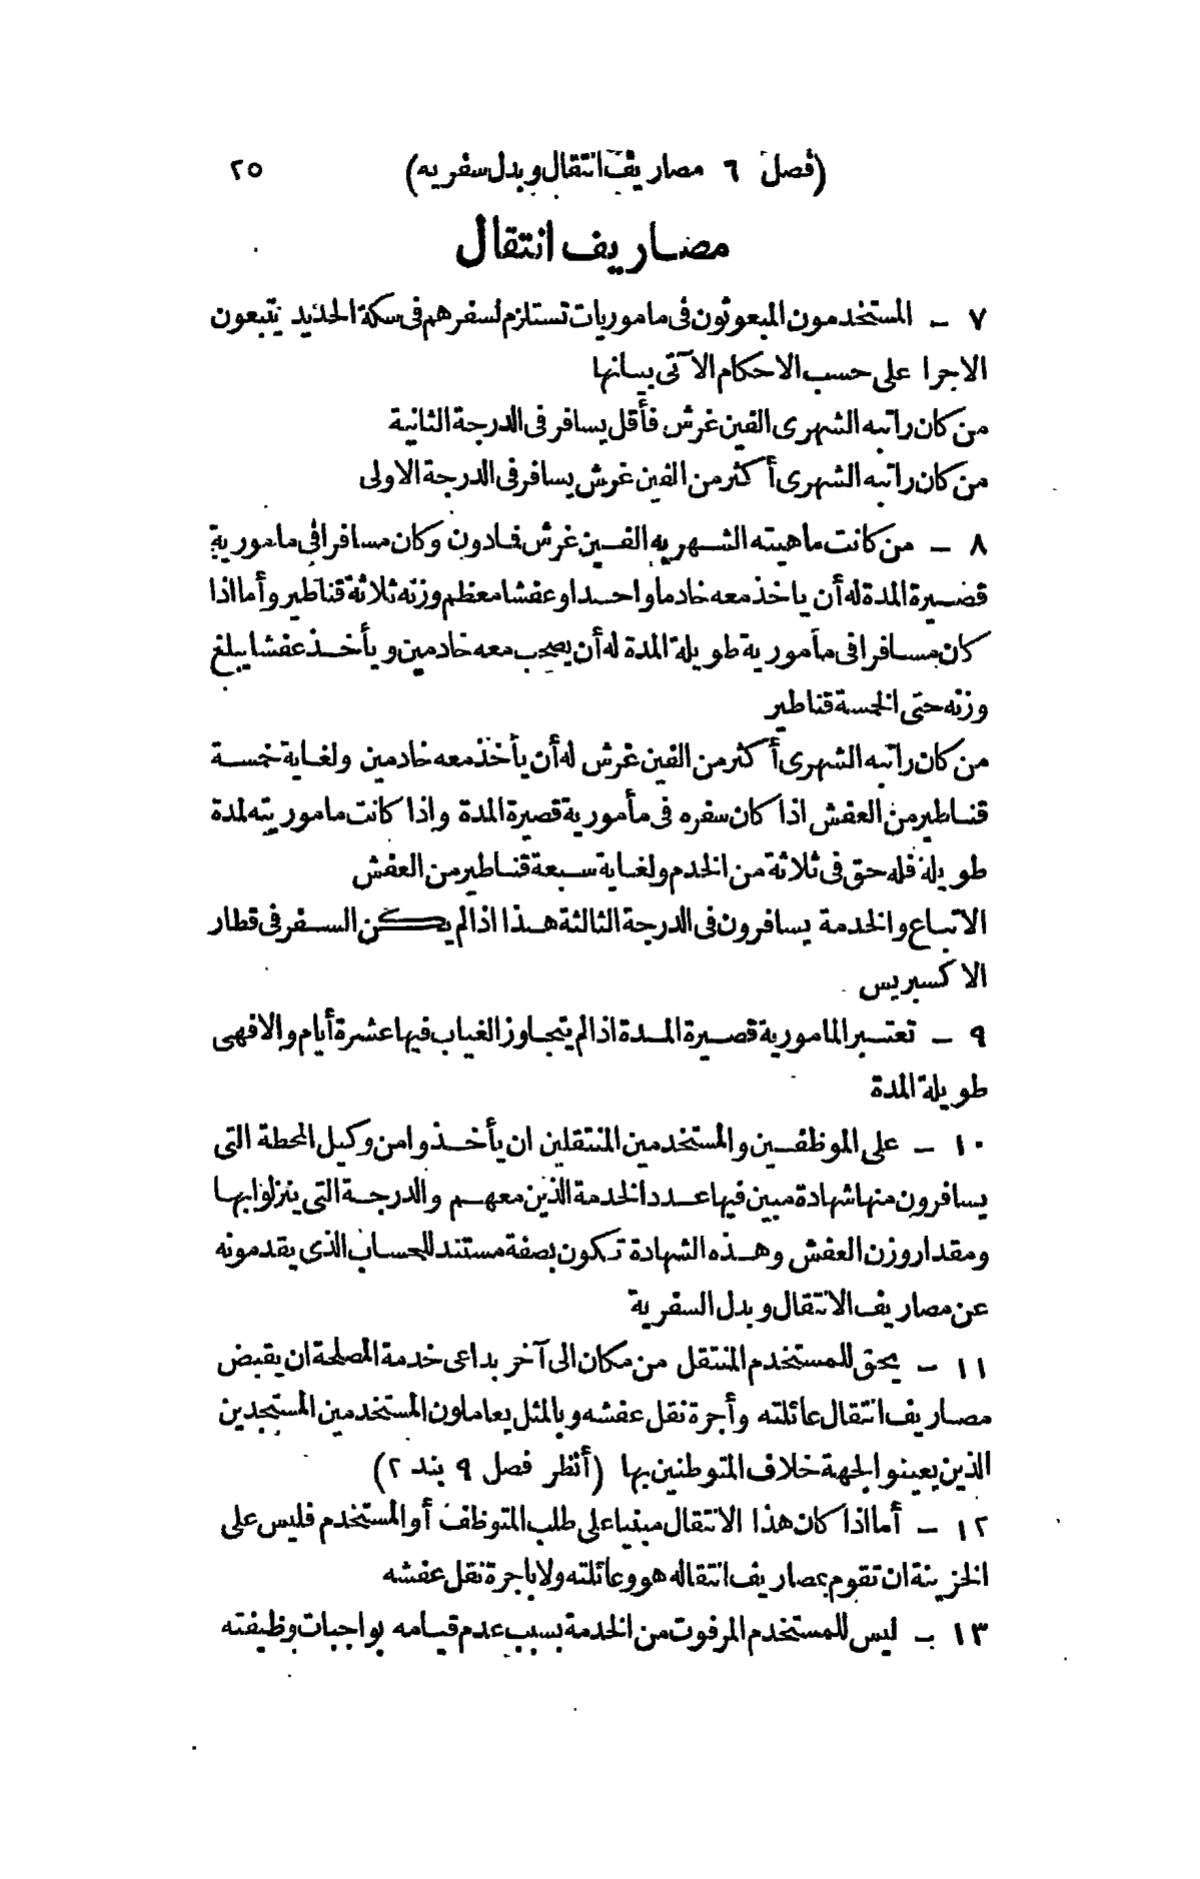 (فصل ٦ مصاريف انتقال وبدل سفريه) ٢٥
مصاريف انتقال
٧ – المستخدمون المبعوثون فى ماموريات تستلزم لسفرهم فى سكة الحديد يتبعون
الاجرا على حسب الاحكام الآتى بيانها
من كان راتبه الشهرى الفين غرش فأقل يسافر فى الدرجة الثانية
من كان راتبه الشهرى أكثر من الفين غرش يسافر فى الدرجة الاولى
٨ – من كانت ماهيته الشهريه الفين غرش فادون وكان مسافرا فى مامورية
قصيرة المدة له أن ياخذ معه خادما واحدا وعفشا معظم وزنه ثلاثة قناطير وأما اذا
كان مسافرا فى مأمورية طويلة المدة له أن يصحب معه خادمين ويأخذ عفشا يبلغ
وزنه حتى الخمسة قناطير
من كان راتبه الشهرى أكثر من الفين غرش له أن يأخذ معه خادمين ولغاية خمسة
قناطير من العفش اذا كان سفره فى مأمورية قصيرة المدة واذا كانت ماموريته لمدة
طويلة فله حق فى ثلاثة من الخدم ولغاية سبعة قناطير من العفش
الاتباع والخدمة يسافرون فى الدرجة الثالثة هذا اذا لم يكن السفر فى قطار
الاكسبريس
٩ – تعتبر المامورية قصيرة المدة اذا لم يتجاوز الغياب فيها عشرة أيام والا فهى
طويلة المدة
١٠ – على الموظفين والمستخدمين المنتقلين ان يأخذوا من وكيل المحطة التى
يسافرون منها شهادة مبين فيها عدد الخدمة الذين معهم والدرجة التى ينزلوا بها
ومقدار وزن العفش وهذه الشهادة تكون بصفة مستند للحساب الذى يقدمونه
عن مصاريف الانتقال وبدل السفرية
١١ – يحق للمستخدم المنتقل من مكان الى آخر بداعى خدمة المصلحة ان يقبض
مصاريف انتقال عائلته وأجرة نقل عفشه وبالمثل يعاملون المستخدمين المستجدين
الذين يعينوا لجهة خلاف المتوطنين بها (أنظر فصل ٩ بند ٢)
١٢ – أما اذا كان هذا الانتقال مبنيا على طلب المتوظف أو المستخدم فليس على
الخزينة ان تقوم بمصاريف انتقاله هو وعائلته ولا باجرة نقل عفشه
١٣ – ليس للمستخدم المرفوت من الخدمة بسبب عدم قيامه بواجبات وظيفته